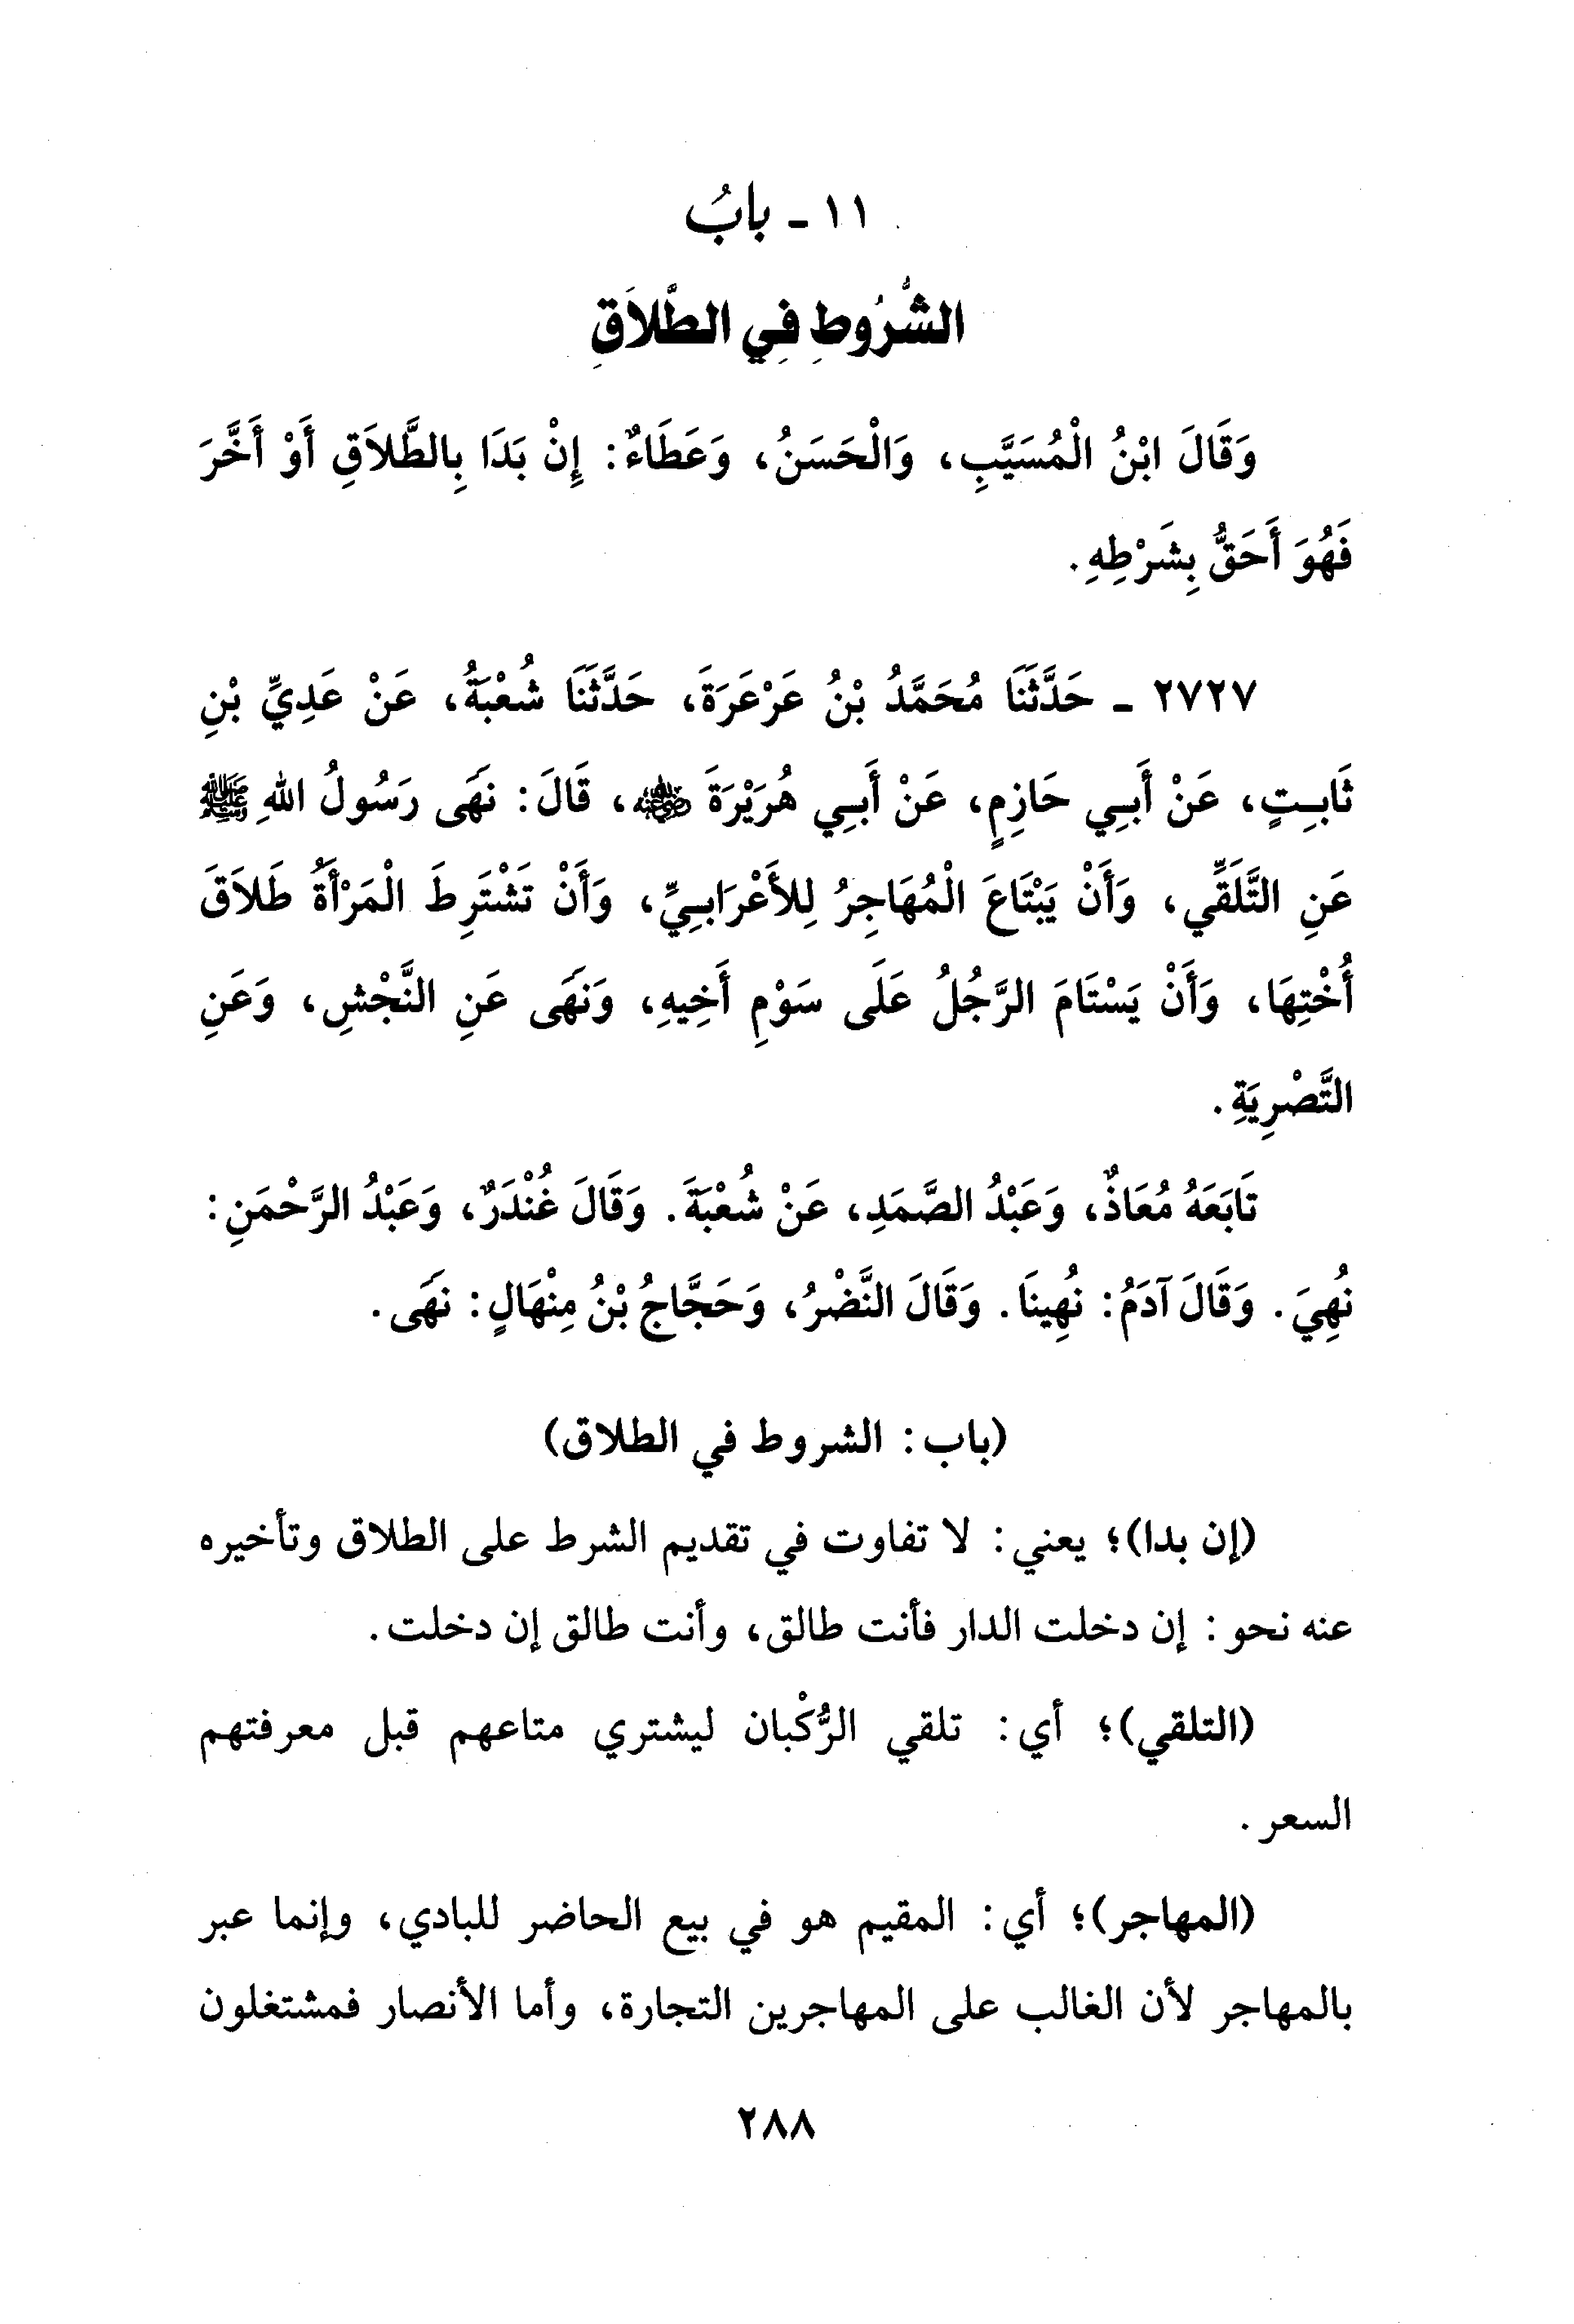 ١١ - بابُ
الشُّرُوطِ فِي الطَّلاَقِ
وَقَالَ ابْنُ الْمُسَيَّبِ، وَالْحَسَنُ، وَعَطَاءٌ: إِنْ بَدَا بِالطَّلاَقِ أَوْ أَخَّرَ
فَهُوَ أَحَقُّ بِشَرْطِهِ.
٢٧٢٧ - حَدَّثَنَا مُحَمَّدُ بْنُ عَرْعَرَةَ، حَدَّثَنَا شُعْبَةُ، عَنْ عَدِيِّ بْنِ
ثَابِتٍ، عَنْ أَبِي حَازِمٍ، عَنْ أَبِي هُرَيْرَةَ رضي الله عنه، قَالَ: نَهَى رَسُولُ اللهِ ﷺ
عَنِ التَّلَقِّي، وَأَنْ يَبْتَاعَ الْمُهَاجِرُ لِلأَعْرَابِيِّ، وَأَنْ تَشْتَرِطَ الْمَرْأَةُ طَلاَقَ
أُخْتِهَا، وَأَنْ يَسْتَامَ الرَّجُلُ عَلَى سَوْمِ أَخِيهِ، وَنَهَى عَنِ النَّجْشِ، وَعَنِ
التَّصْرِيَةِ.
تَابَعَهُ مُعَاذٌ، وَعَبْدُ الصَّمَدِ، عَنْ شُعْبَةَ. وَقَالَ غُنْدَرٌ، وَعَبْدُ الرَّحْمَنِ:
نُهِيَ. وَقَالَ آدَمُ: نُهِينَا. وَقَالَ النَّضْرُ، وَحَجَّاجُ بْنُ مِنْهَالٍ: نَهَى.
(باب: الشروط في الطلاق)
(إن بدا)؛ يعني: لا تفاوت في تقديم الشرط على الطلاق وتأخيره
عنه نحو: إن دخلت الدار فأنت طالق، وأنت طالق إن دخلت.
(التلقي)؛ أي: تلقي الرُّكْبان ليشتري متاعهم قبل معرفتهم
السعر.
(المهاجر)؛ أي: المقيم هو في بيع الحاضر للبادي، وإنما عبر
بالمهاجر لأن الغالب على المهاجرين التجارة، وأما الأنصار فمشتغلون
٢٨٨